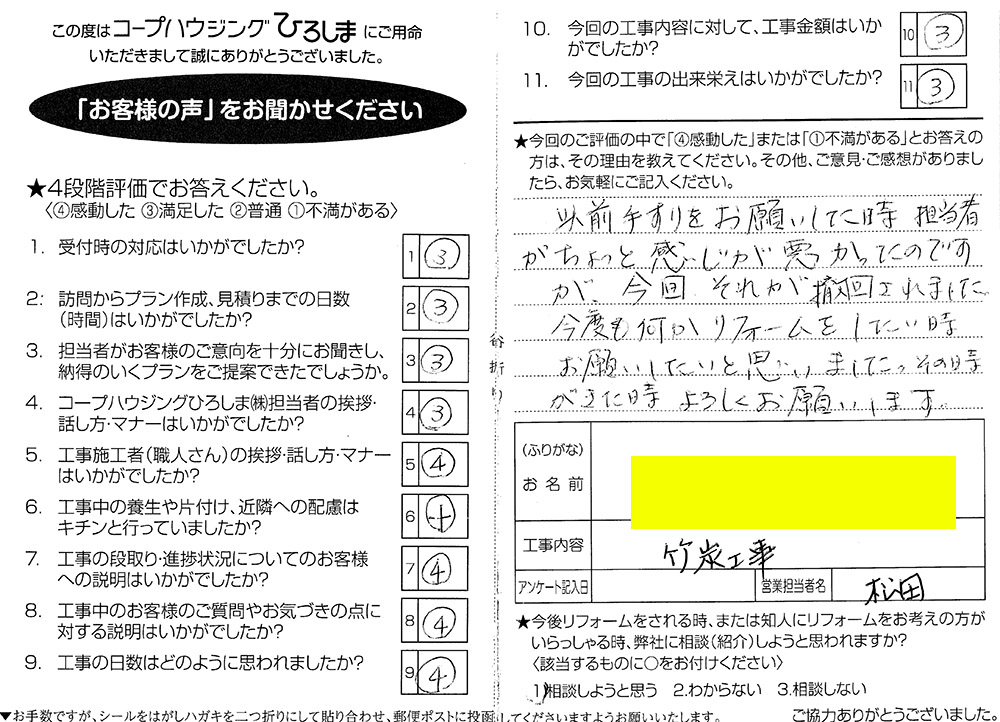 この度はコープハウジングひろしまにご用命
いただきまして誠にありがとうございました。
「お客様の声」をお聞かせください
★4段階評価でお答えください。
〈④感動した ③満足した ②普通 ①不満がある〉
1. 受付時の対応はいかがでしたか?
1 ③
2. 訪問からプラン作成、見積りまでの日数
(時間)はいかがでしたか?
2 ③
3. 担当者がお客様のご意向を十分にお聞きし、
納得のいくプランをご提案できたでしょうか。
3 ③
4. コープハウジングひろしま㈱担当者の挨拶・
話し方・マナーはいかがでしたか?
4 ③
5. 工事施工者(職人さん)の挨拶・話し方・マナー
はいかがでしたか?
5 ④
6. 工事中の養生や片付け、近隣への配慮は
キチンと行っていましたか?
6 ④
7. 工事の段取り・進捗状況についてのお客様
への説明はいかがでしたか?
7 ④
8. 工事中のお客様のご質問やお気づきの点に
対する説明はいかがでしたか?
8 ④
9. 工事の日数はどのように思われましたか?
9 ④
▼お手数ですが、シールをはがしハガキを二つ折りにして貼り合わせ、郵便ポストに投函してくださいますようお願いいたします。
10. 今回の工事内容に対して、工事金額はいか
がでしたか?
10 ③
11. 今回の工事の出来栄えはいかがでしたか?
11 ③
★今回のご評価の中で「④感動した」または「①不満がある」とお答えの
方は、その理由を教えてください。その他、ご意見・ご感想がありまし
たら、お気軽にご記入ください。
以前手すりをお願いした時 担当者
がちょっと感じが悪かったのです
が、今回 それが撤回されました
今度も何かリフォームをしたい時
お願いしたいと思いました。その時
がきた時 よろしくお願いします。
(ふりがな)
お名前
工事内容 竹炭工事
アンケート記入日
営業担当者名 松田
★今後リフォームをされる時、または知人にリフォームをお考えの方が
いらっしゃる時、弊社に相談(紹介)しようと思われますか?
〈該当するものに○をお付けください〉
1.相談しようと思う 2.わからない 3.相談しない
ご協力ありがとうございました。